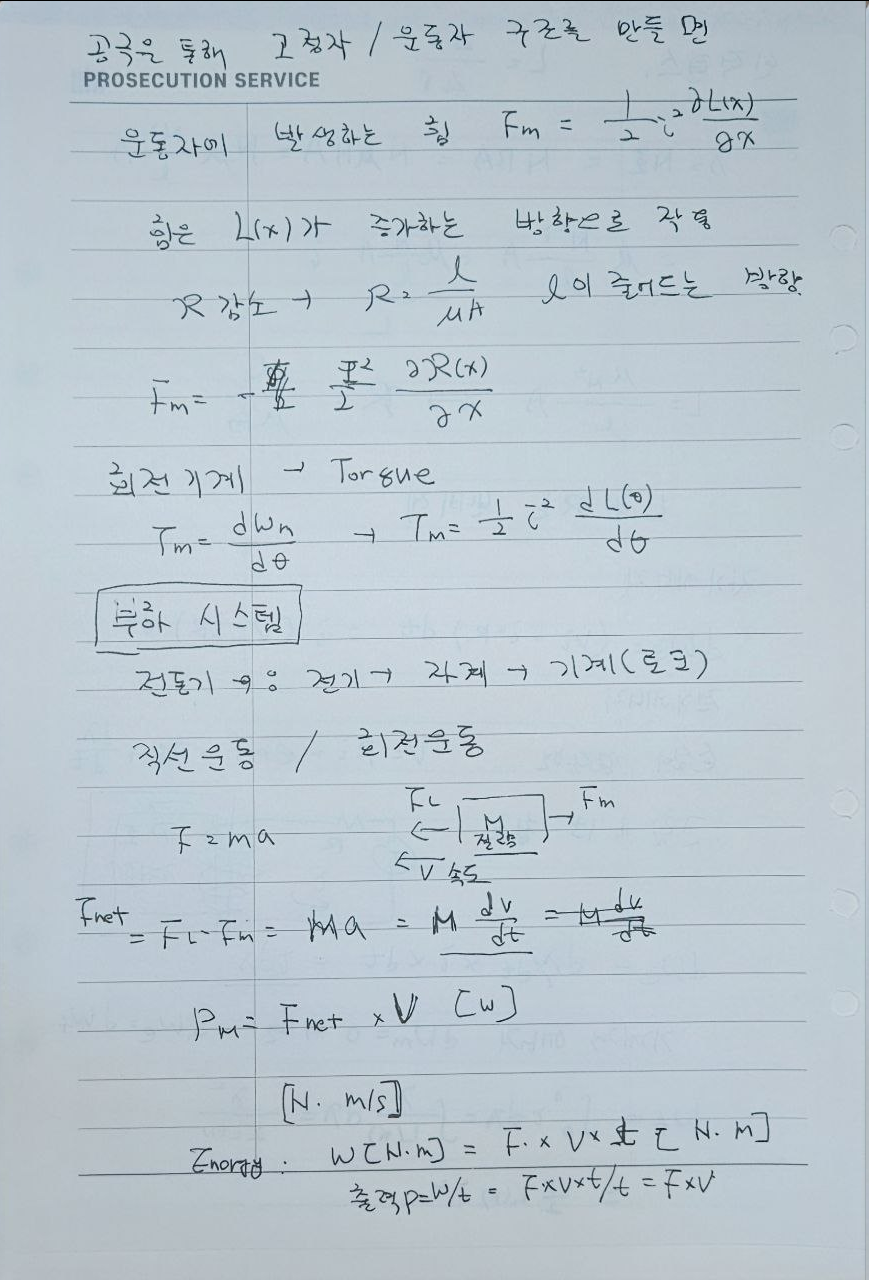 공극을 통해 고정자 / 운동자 구조를 만들면
PROSECUTION SERVICE
운동자에 발생하는 힘 Fm = 1/2 i² ∂L(x)/∂x
힘은 L(x)가 증가하는 방향으로 작용
R 감소 → R = l/μA l이 줄어드는 방향
Fm = - Φ²/2 ∂R(x)/∂x
회전기계 → Torque
Tm = dWm/dθ → Tm = 1/2 i² dL(θ)/dθ
부하 시스템
전동기 역: 전기 → 자계 → 기계(토크)
직선운동 / 회전운동
FL M Fm
F = ma 질량
V 속도
Fnet = FL - Fm = Ma = M dv/dt = M dv/dt
PM = Fnet × V [W]
[N. m/s]
Energy: W[N.m] = F. × V × t [N.m]
출력 P=W/t = F×V×t/t = F×V